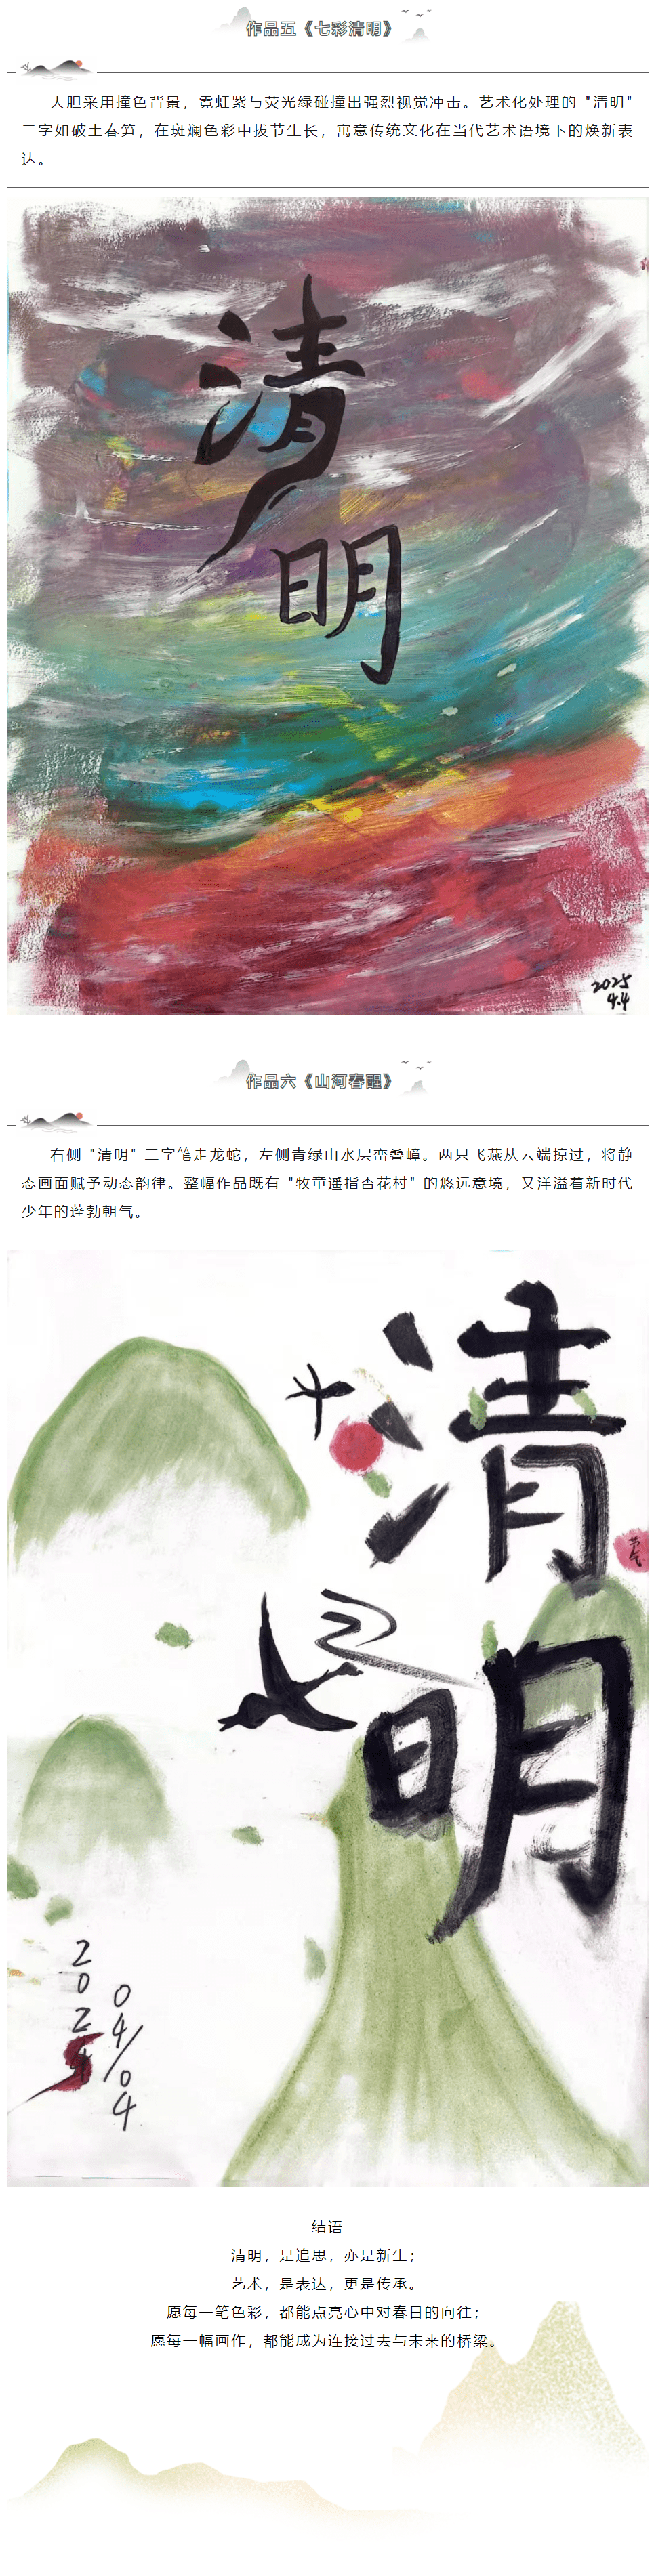 作品五《七彩清明》
大胆采用撞色背景，霓虹紫与荧光绿碰撞出强烈视觉冲击。艺术化处理的 "清明"
二字如破土春笋，在斑斓色彩中拔节生长，寓意传统文化在当代艺术语境下的焕新表
达。
清
明
2025
4.4
作品六《山河春醒》
右侧 "清明" 二字笔走龙蛇，左侧青绿山水层峦叠嶂。两只飞燕从云端掠过，将静
态画面赋予动态韵律。整幅作品既有 "牧童遥指杏花村" 的悠远意境，又洋溢着新时代
少年的蓬勃朝气。
清
节气
明
2025
04/04
结语
清明，是追思，亦是新生；
艺术，是表达，更是传承。
愿每一笔色彩，都能点亮心中对春日的向往；
愿每一幅画作，都能成为连接过去与未来的桥梁。